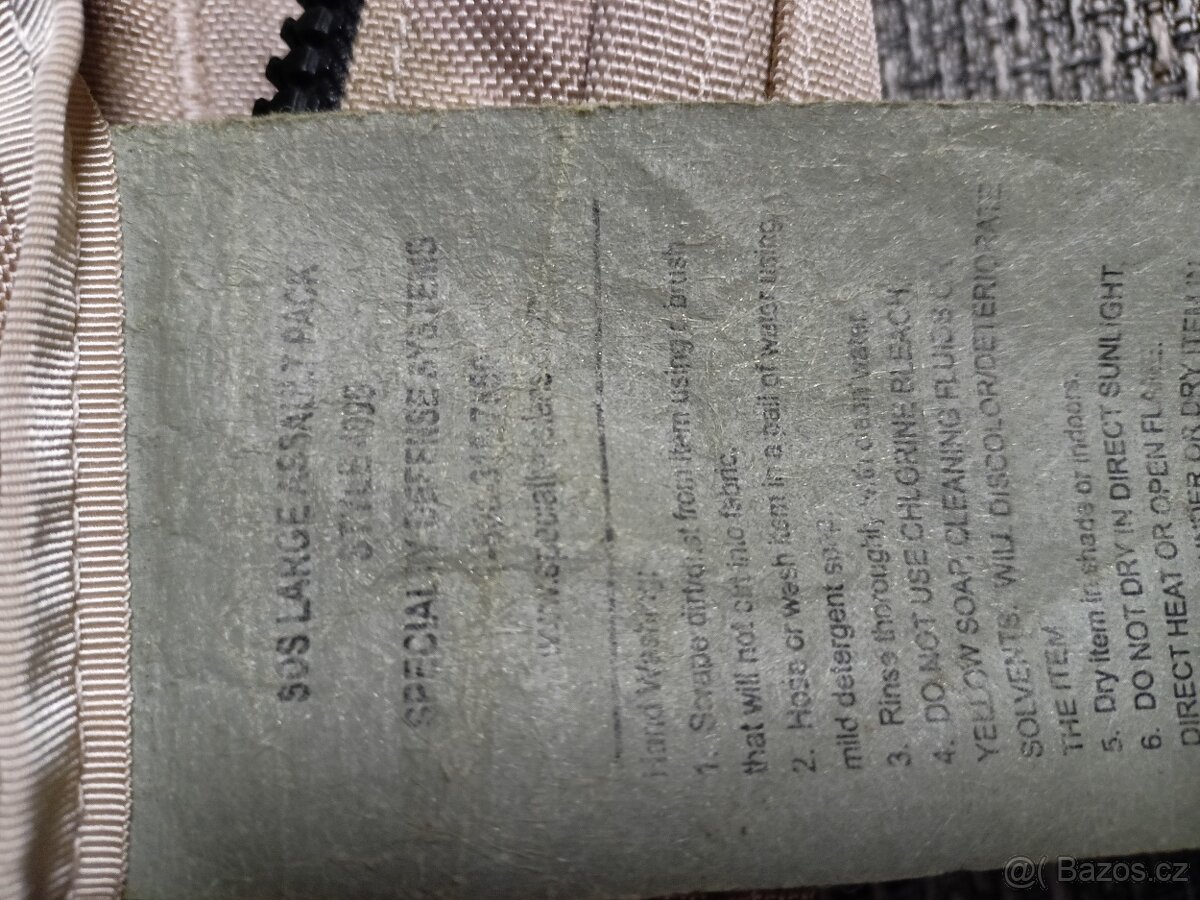 SDS LARGE ASSAULT PACK
STYLE
SPECIALTY DEFENSE SYSTEMS
Hand Washing:
1. Scrape dirt/dust from item using a brush
that will not cut into fabric.
2. Hose or wash item in a pail of water using
mild detergent soap
3. Rinse thoroughly with clean water.
4. DO NOT USE CHLORINE BLEACH,
YELLOW SOAP, CLEANING FLUIDS
SOLVENTS. WILL DISCOLOR/DETERIORATE
THE ITEM
5. Dry item in shade or indoors.
DO NOT DRY IN DIRECT SUNLIGHT,
6. DIRECT HEAT OR OPEN FLAME.
DO NOT DRY ITEM IN
@( Bazos.cz